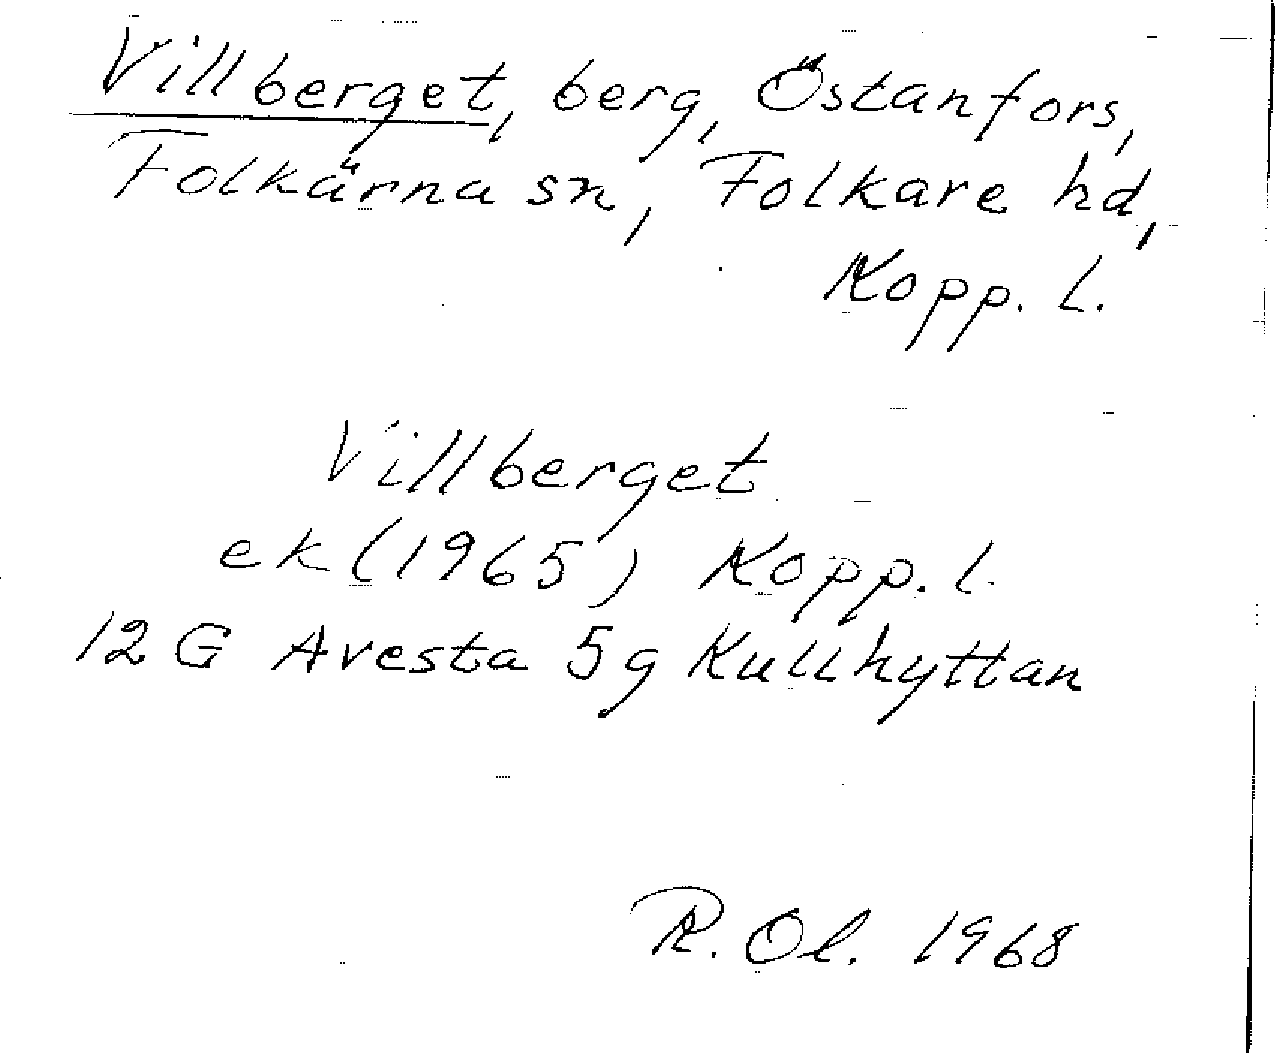 Villberget, berg, Östanfors,
Folkärna sn, Folkare hd,
Kopp. l.
Villberget
ek (1965) Kopp. l.
12 G Avesta 5g Kullhyttan
R. Ol. 1968